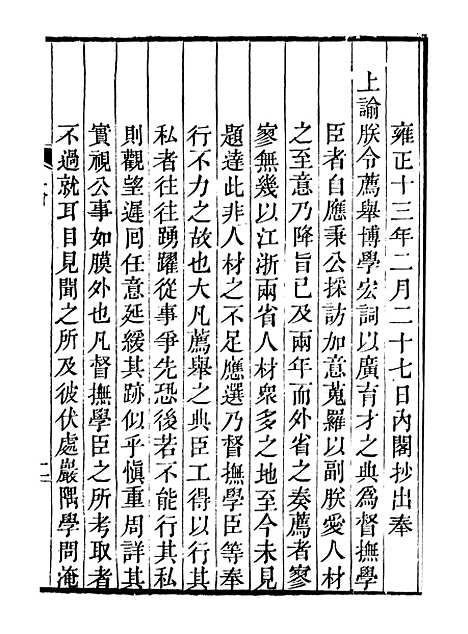 雍正十三年二月二十七日內閣抄出奉
上諭朕令薦舉博學宏詞以廣育才之典爲督撫學
臣者自應秉公採訪加意蒐羅以副朕愛人材
之至意乃降旨已及兩年而外省之奏薦者寥
寥無幾以江浙兩省人材衆多之地至今未見
題達此非人材之不足應選乃督撫學臣等奉
行不力之故也大凡薦舉之典臣工得以行其
私者往往踴躍從事爭先恐後若不能行其私
則觀望遲囘任意延緩其跡似乎愼重周詳其
實視公事如膜外也凡督撫學臣之所考取者
不過就耳目見聞之所及彼伏處巖隅學問淹
二